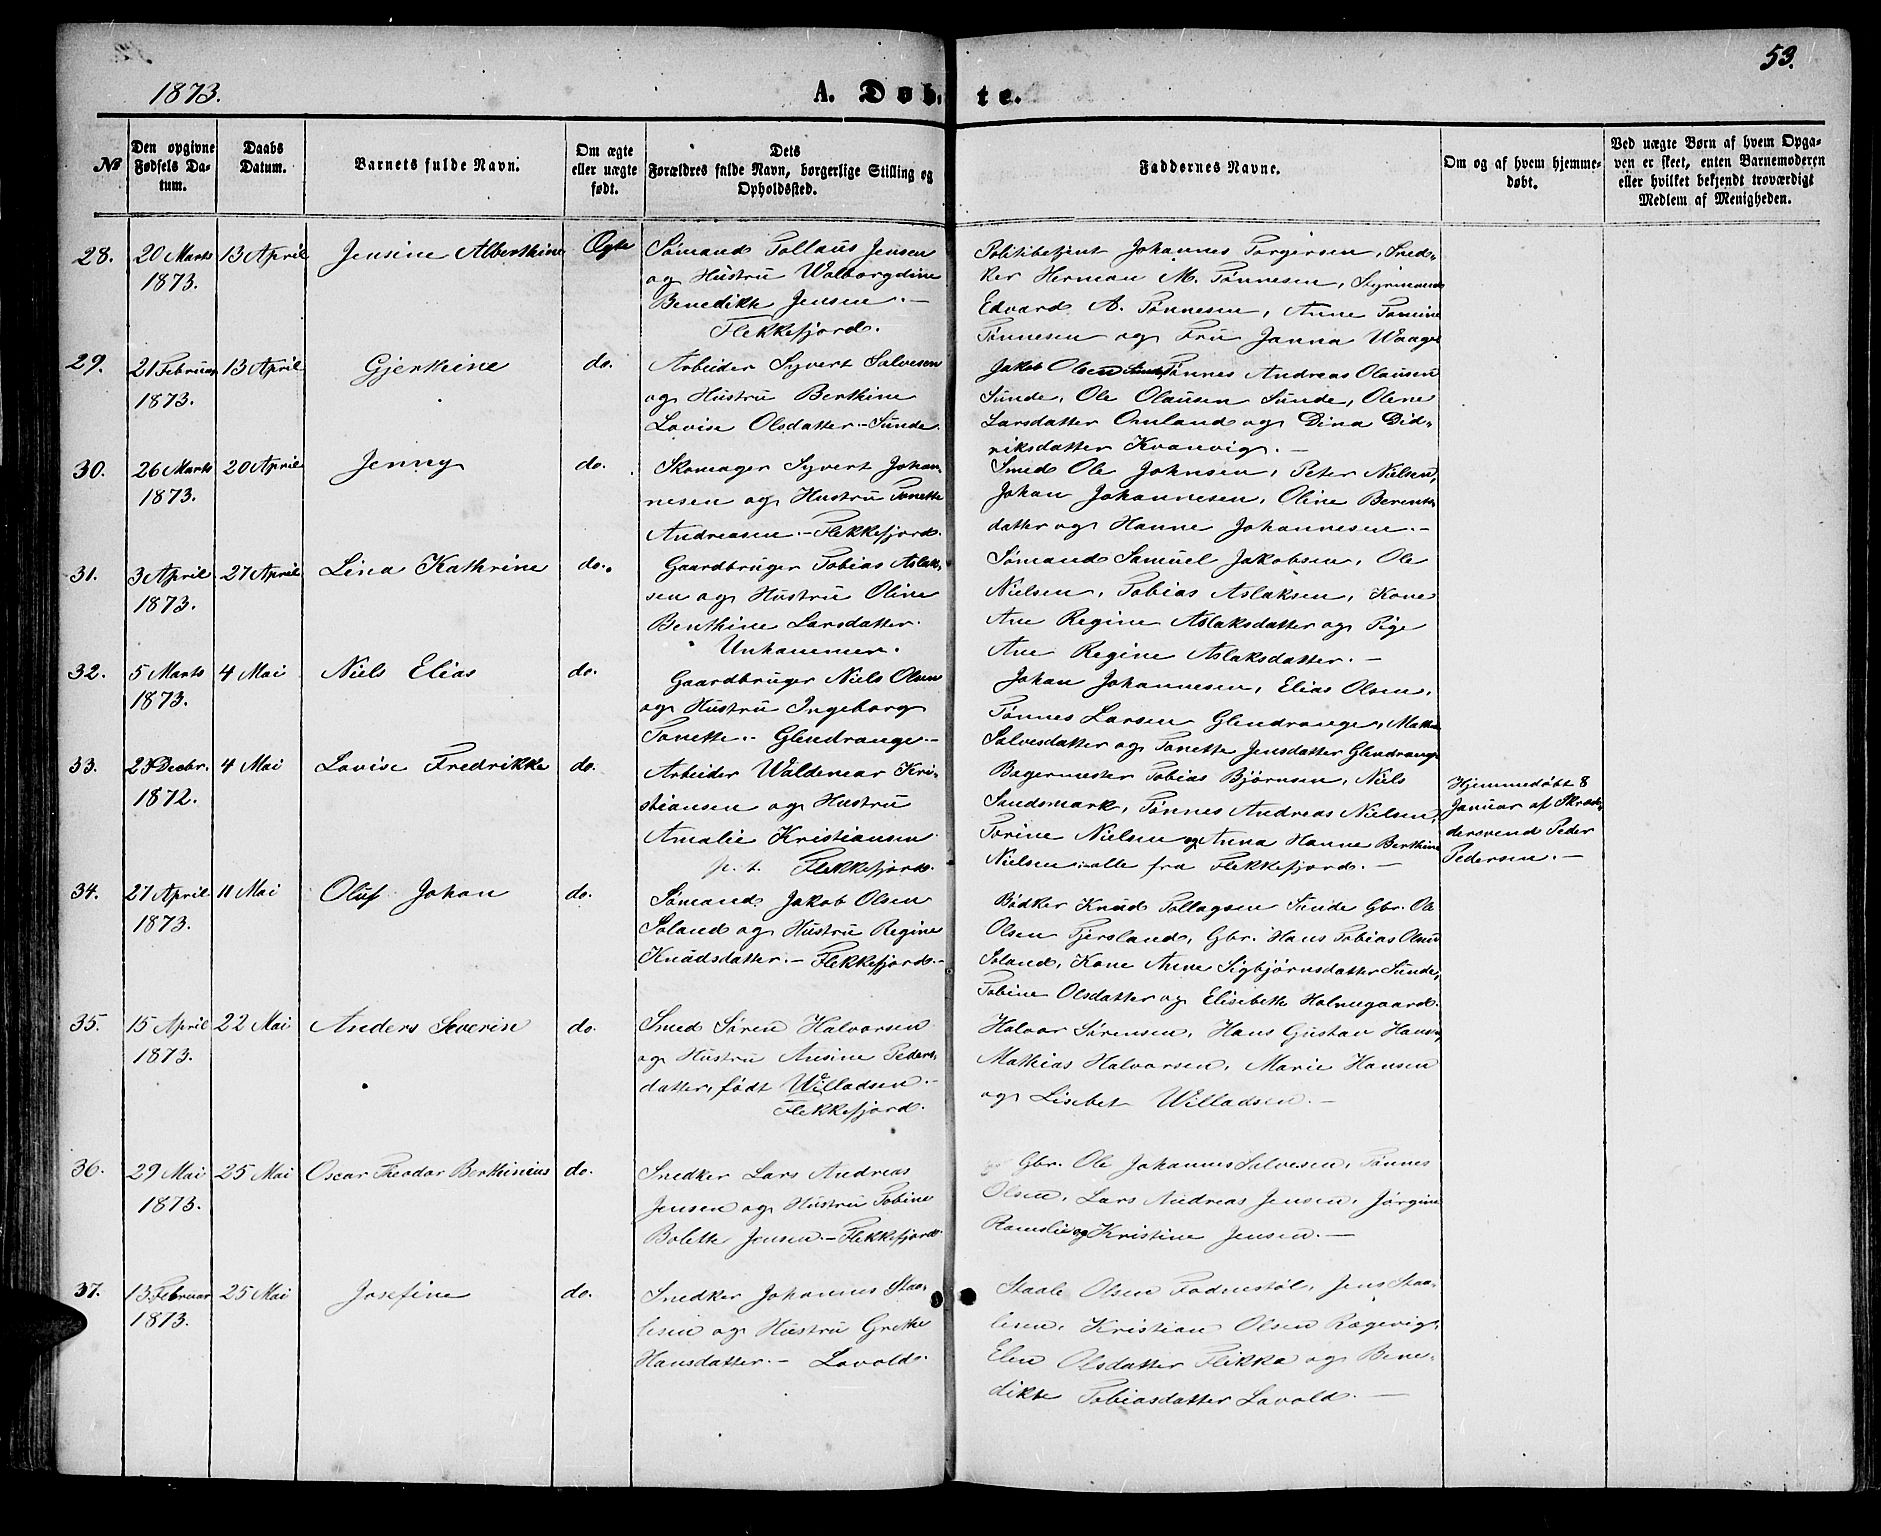 1873.
A. Døbte.
53.
№
Den opgivne Fødsels Datum.
Daabs Datum.
Barnets fulde Navn.
Om ægte eller uægte født.
Dets Forældres fulde Navn, borgerlige Stilling og Opholdssted.
Faddernes Navne.
Om og af hvem hjemmedøbt.
Ved uægte Børn af hvem Opgaven er skeet, enten Barnemoderen eller hvilket bekjendt troværdigt Medlem af Menigheden.
28.
20 Marts 1873.
13 April
Jensine Alberthine
Ægte
Sømand Tollaus Jensen
og Hustru Walborgdine
Benedikte Jensen. —
Flekkefjord.
Politibetjent Johannes Torgersen, Sned-
ker Herman M. Tønnesen, Styrmand
Edvard A. Tønnesen, Anne Tomine
Tønnesen og Fru Janna Waage
29.
21 Februar 1873.
13 April
Gjerthine
do.
Arbeider Syvert Salvesen
og Hustru Berthine
Lovise Olsdatter. — Sunde.
Jakob Olsen Sunde, Tønnes Andreas Olausen
Sunde, Ole Olausen Sunde, Olene
Larsdatter Omland og Dina Did-
riksdatter Kvanvig. —
30.
26 Marts 1873.
20 April
Jenny
do.
Skomager Syvert Johan-
nesen og Hustru Tonette
Andreasen. — Flekkefjord.
Smed Ole Johnsen, Peter Nielsen,
Johan Johannesen, Oline Berents-
datter og Hanne Johannesen. —
31.
3 April 1873.
27 April
Lina Kathrine
do.
Gaardbruger Tobias Aslak-
sen og Hustru Oline
Benthine Larsdatter.
Unhammer.
Sømand Samuel Jakobsen, Ole
Nielsen, Tobias Aslaksen, Kone
Ane Regine Aslaksdatter og Pige
Ane Regine Aslaksdatter. —
32.
5 Marts 1873.
4 Mai
Niels Elias
do.
Gaardbruger Niels Olsen
og Hustru Ingeborg
Tonette. — Glendrange. —
Johan Johannesen, Elias Olsen,
Tønnes Larsen Glendrange, Malene
Salvesdatter og Tonette Jensdatter Glendrange
33.
23 Decbr. 1872.
4 Mai
Lovise Fredrikke
do.
Arbeider Waldemar Kri-
stiansen og Hustru
Amalie Kristiansen
p. t. Flekkefjord.
Bagermester Tobias Bjørnsen, Niels
Sandsmark, Tønnes Andreas Nielsen,
Torine Nielsen og Anna Hanne Berthine
Nielsen, alle fra Flekkefjord. —
Hjemmedøbt 8
Januar af Skræd-
dersvend Peder
Pedersen. —
34.
27 April 1873.
11 Mai
Oluf Johan
do.
Sømand Jakob Olsen
Soland og Hustru Regine
Knudsdatter. — Flekkefjord. —
Bødker Knud Tollagsen Sunde Gbr. Ole
Olsen Fjersland, Gbr. Hans Tobias Olsen
Soland, Kone Anne Sigbjørnsdatter Sunde,
Tobine Olsdatter og Elisebette Holmegaard.
35.
15 April 1873.
22 Mai
Anders Severin
do.
Smed Søren Halvorsen
og Hustru Ansine Peders-
datter, født Willadsen. —
Flekkefjord.
Halvor Sørensen, Hans Gustav Hansen,
Mathias Halvorsen, Marie Hansen
og Lisebet Willadsen. —
36.
29 Mai 1873.
25 Mai
Oscar Theodor Berthinius
do.
Snedker Lars Andreas
Jensen og Hustru Tobine
Bolette Jensen. — Flekkefjord.
Gbr. Ole Johannes Salvesen, Tønnes
Olsen, Lars Andreas Jensen, Jørgine
Ramslie og Kristine Jensen. —
37.
13 Februar 1873.
25 Mai
Josefine
do.
Snedker Johannes Staa-
lesen og Hustru Grethe
Hansdatter. — Lavold.
Staale Olsen Fodnestøl, Jens Staa-
lesen, Kristian Olsen Rægevig,
Elen Olsdatter Flikka og Bene-
dikte Tobiasdatter Lavold. —